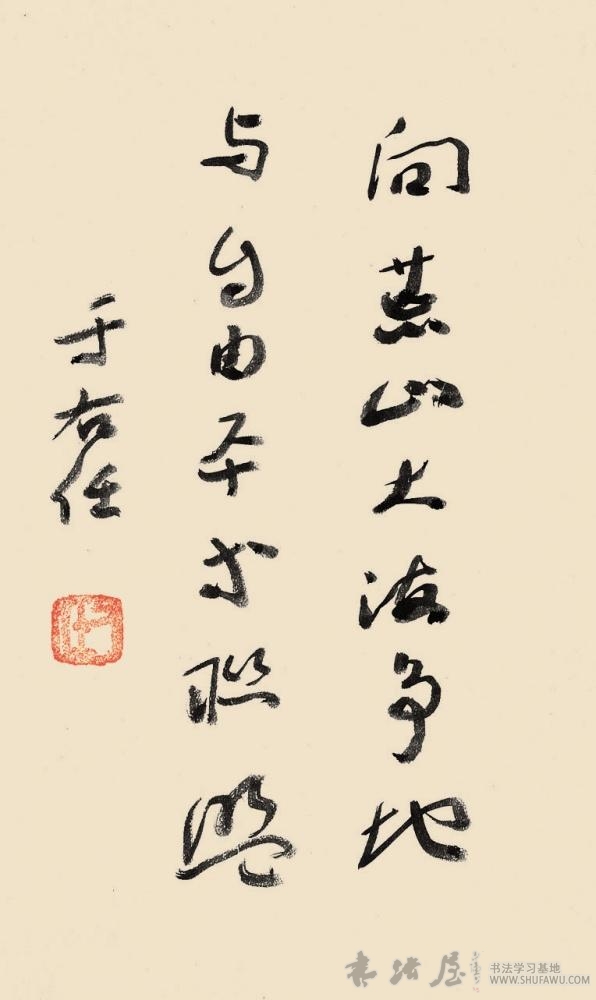 向荒山大海争地
与自由平等聯盟
于右任
右任
書法屋
书法学习基地
WWW.SHUFAWU.COM